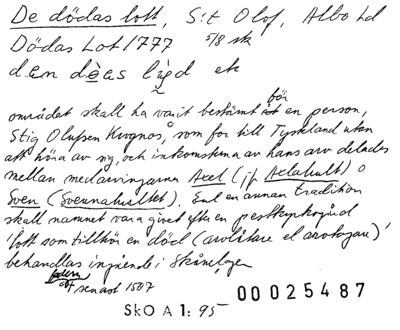 De dödas lott, S:t Olof, Albo hd
Dödas Lot 1777 5/8 sk
den dòes lìyd ek
för
området skall ha varit bestämt åt en person,
Stig Olufsen Krognos, som for till Tyskland utan
att höra av sig, och inkomsterna av hans arv delades
mellan medarvingarna Axel (jf Axlahult) o
Sven (Svennahultet). Enl en annan tradition
skall namnet vara givet efter en pestkyrkogård
'lott som tillhör en död (arvlåtare el arvtagare)'
behandlas ingående i Skånelagen
senast 1507
SkO A 1: 95
00025487